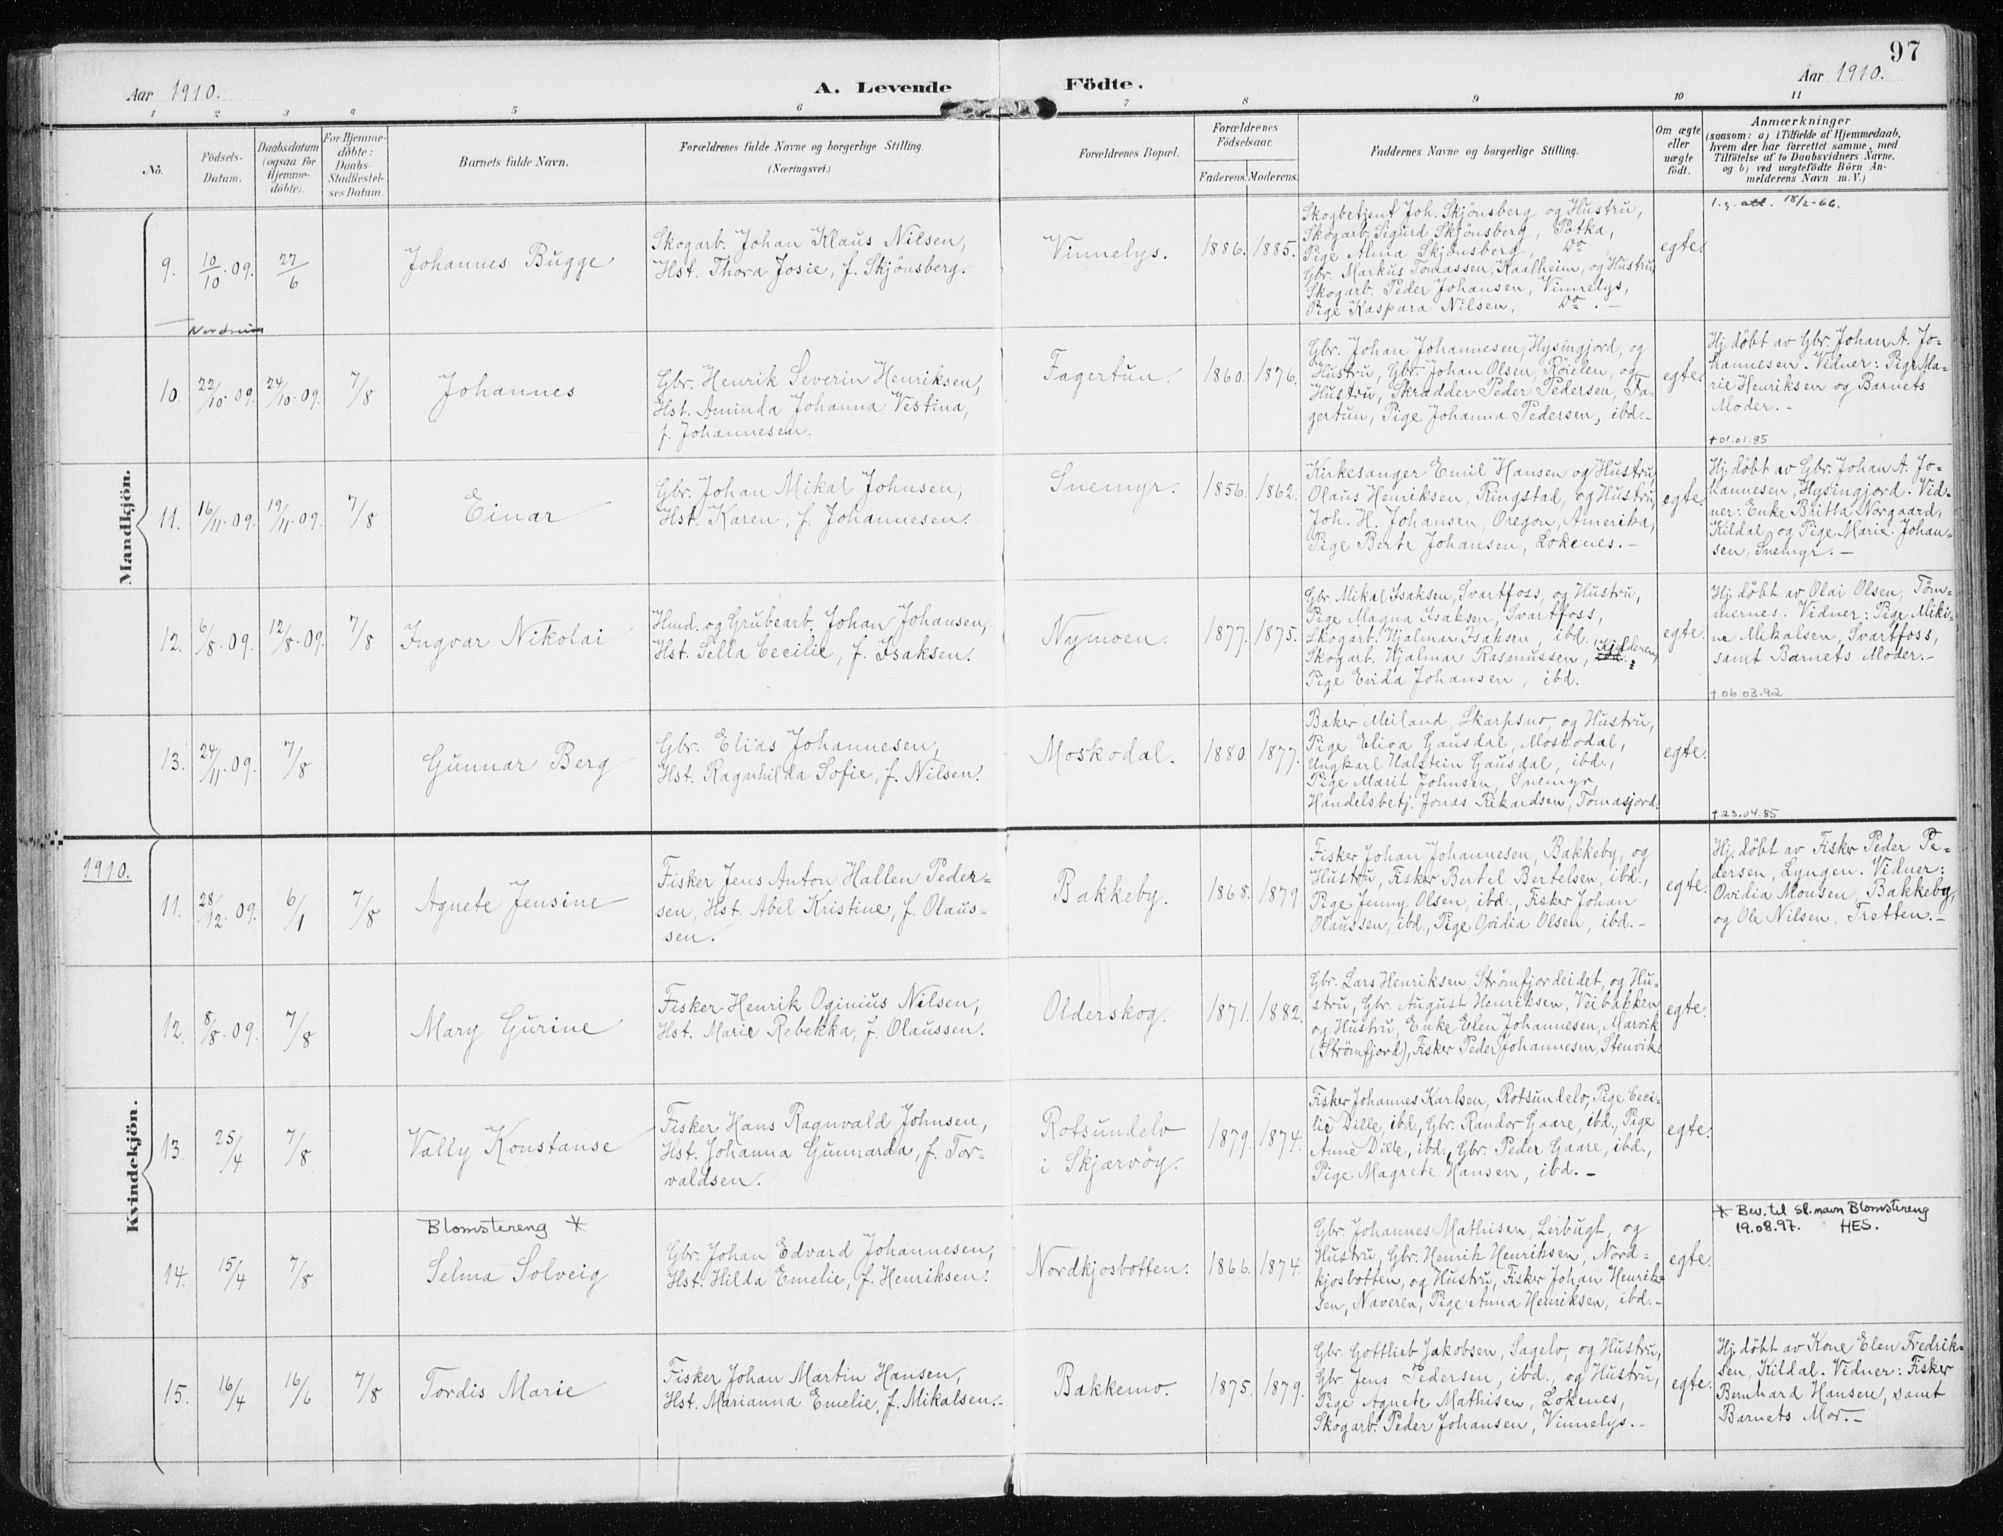 97
Aar 1910.
A. Levende Födte.
Aar 1910.
1 2 3 4 5 6 7 8 9 10 11
No.
Födsels-
Datum.
Daabsdatum
(ogsaa for
Hjemme-
döbte).
For Hjemme-
döbte:
Daabs-
Stadfæstel-
ses Datum.
Barnets fulde Navn.
Forældrenes fulde Navne og borgerlige Stilling.
(Næringsvei.)
Forældrenes Bopæl.
Forældrenes
Födselsaar.
Faderens. Moderens.
Faddernes Navne og borgerlige Stilling.
Om ægte
eller
uægte
födt.
Anmærkninger
(saasom: a) i Tilfælde af Hjemmedaab,
hvem der har forrettet samme, med
Tilföielse af to Daabsvidners Navne,
og b) ved uægtefödte Börn An-
melderens Navn m. V.)
Mandkjön.
9.
10/10.09.
27/6
Johannes Bugge
Skogarb. Johan Klaus Nilsen,
Hst. Thora Josie, f. Skjønsberg.
Vinnelys.
1886. 1885.
Skogbetjent Joh. Skjønsberg og Hustru,
Skogarb. Sigurd Skjønsberg, Potka,
Pige Alma Skjønsberg, Do
Gbr. Markus Tomassen, Kaalheim, og Hustru
Skogarb. Peder Johansen, Vinnelys,
Pige Kaspara Nilsen, Do. -
egte.
l.g. att. 18/2-66.
Nordreisa
10.
22/10.09.
24/10.09.
7/8
Johannes
Gbr. Henrik Severin Henriksen,
Hst. Aminda Johanna Vestina,
f. Johannesen.
Fagertun
1860. 1876.
Gbr. Johan Johannesen, Hysingjord, og
Hustru, Gbr. Johan Olsen, Røielen, og
Hustru, Skrædder Peder Pedersen, Fa-
gertun, Pige Johanna Pedersen, ibd.-
egte.
Hj. døbt av Gbr. Johan A. Jo-
hannesen. Vidner: Pige Ma-
rie Henriksen og Barnets
Moder.-
+01.01.85
11.
16/11.09.
19/11.09.
7/8
Einar
Gbr. Johan Mikal Johnsen,
Hst. Karen, f. Johannesen.
Snemyr.
1856. 1862.
Kirkesanger Emil Hansen og Hustru,
Olaus Henriksen, Ringstad, og Hustru,
Joh. H. Johansen, Oregon, Amerika,
Pige Berte Johansen, Lokenes.-
egte.
Hj. døbt av Gbr. Johan A. Jo-
hannesen, Hysingjord. Vid-
ner: Enke Britta Nergaard,
Kildal og Pige Marie Johan-
sen, Snemyr.-
12.
6/8.09.
12/8.09.
7/8
Ingvar Nikolai
Hmd. og Grubearb. Johan Johansen,
Hst. Sella Cecilie, f. Isaksen.
Nymoen
1877. 1875.
Gbr. Mikal Isaksen, Svartfoss, og Hustru,
Pige Magna Isaksen, Svartfoss,
Skogarb. Hjalmar Isaksen, ibd.
Skogarb. Hjalmar Rasmussen, ibd.
Pige Evida Johansen, ibd.
egte.
Hj. døbt av Olai Olsen, Tøm-
mernes. Vidner: Pige Miki-
ne Mikalsen, Svartfoss,
samt Barnets Moder.-
+06.03.92
13.
24/11.09.
7/8
Gunnar Berg
Gbr. Elias Johannesen,
Hst. Ragnhilda Sofie, f. Nilsen.
Moskodal.
1880. 1877.
Baker Meiland, Skarpsno, og Hustru,
Pige Eliva Gausdal, Moskodal,
Ungkarl Halstein Gausdal, ibd.,
Pige Marit Johnsen, Snemyr,
Handelsbetj. Jonas Rikardsen, Tomasjord.
egte.
+23.04.85
1910.
Kvindekjön.
11.
28/12.09.
6/1
7/8
Agnete Jensine
Fisker Jens Anton Hallen Peder-
sen, Hst. Abel Kristine, f. Olaus-
sen.
Bakkeby.
1868. 1879
Fisker Johan Johannesen, Bakkeby, og
Hustru, Fisker Bertel Bertelsen, ibd.,
Pige Jenny Olsen, ibd., Fisker Johan
Olaussen, ibd., Pige Ovidia Olsen, ibd.-
egte.
Hj. døbt av Fisker Peder Pe-
dersen, Lyngen. Vidner:
Ovidia Monsen, Bakkeby,
og Ole Nilsen, Tretten.-
12.
8/8.09.
7/8
Mary Gurine
Fisker Henrik Oginius Nilsen,
Hst. Marie Rebekka, f. Olaussen.
Olderskog.
1871. 1882.
Gbr. Lars Henriksen, Strømfjordeidet, og Hu-
stru, Gbr. August Henriksen, Veibakken
og Hustru, Enke Elen Johannesen, Marvik
(Strømfjord), Fisker Peder Johannesen, Stenvik.
egte.
13.
25/4
7/8
Vally Konstanse
Fisker Hans Ragnvald Johnsen,
Hst. Johanna Gunnarda, f. Tor-
valdsen.
Rotsundelv
i Skjærvøy.
1879. 1874.
Fisker Johannes Karlsen, Rotsundelv, Pige Ceci-
lie Dille, ibd., Gbr. Randor Gaare, ibd., Pige
Anne Dille, ibd., Gbr. Peder Gaare, ibd.,
Pige Magrete Hansen, ibd.-
egte.
14.
15/4
7/8
Blomstereng *
Selma Solveig
Gbr. Johan Edvard Johannesen,
Hst. Hilda Emelie, f. Henriksen.
Nordkjosbotten.
1866. 1874.
Gbr. Johannes Mathisen, Lerbugt, og
Hustru, Gbr. Henrik Henriksen, Nord-
kjosbotten, og Hustru, Fisker Johan Henrik-
sen, Naveren, Pige Anna Henriksen, ibd.-
egte.
* Bev. til sl.navn Blomstereng
19.08.97. HES.
15.
16/4
16/6
7/8
Tordis Marie
Fisker Johan Martin Hansen,
Hst. Marianna Emelie, f. Mikalsen.-
Bakkemo.
1875. 1879.
Gbr. Gottlieb Jakobsen, Sagelv, og Hustru,
Gbr. Jens Pedersen, ibd., og Hustru,
Pige Agnete Mathisen, Lokenes,
Skogarb. Peder Johansen, Vinnelys.-
egte.
Hj. døbt av Kone Elen Fredrik-
sen, Kildal. Vidner: Fisker
Bernhard Hansen, samt
Barnets Mor.-